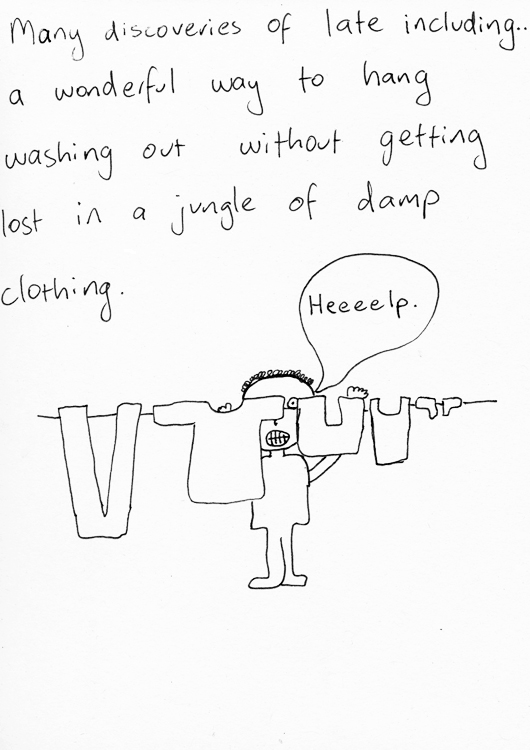 Many discoveries of late including..
a wonderful way to hang
washing out without getting
lost in a jungle of damp
clothing.
Heeeelp.